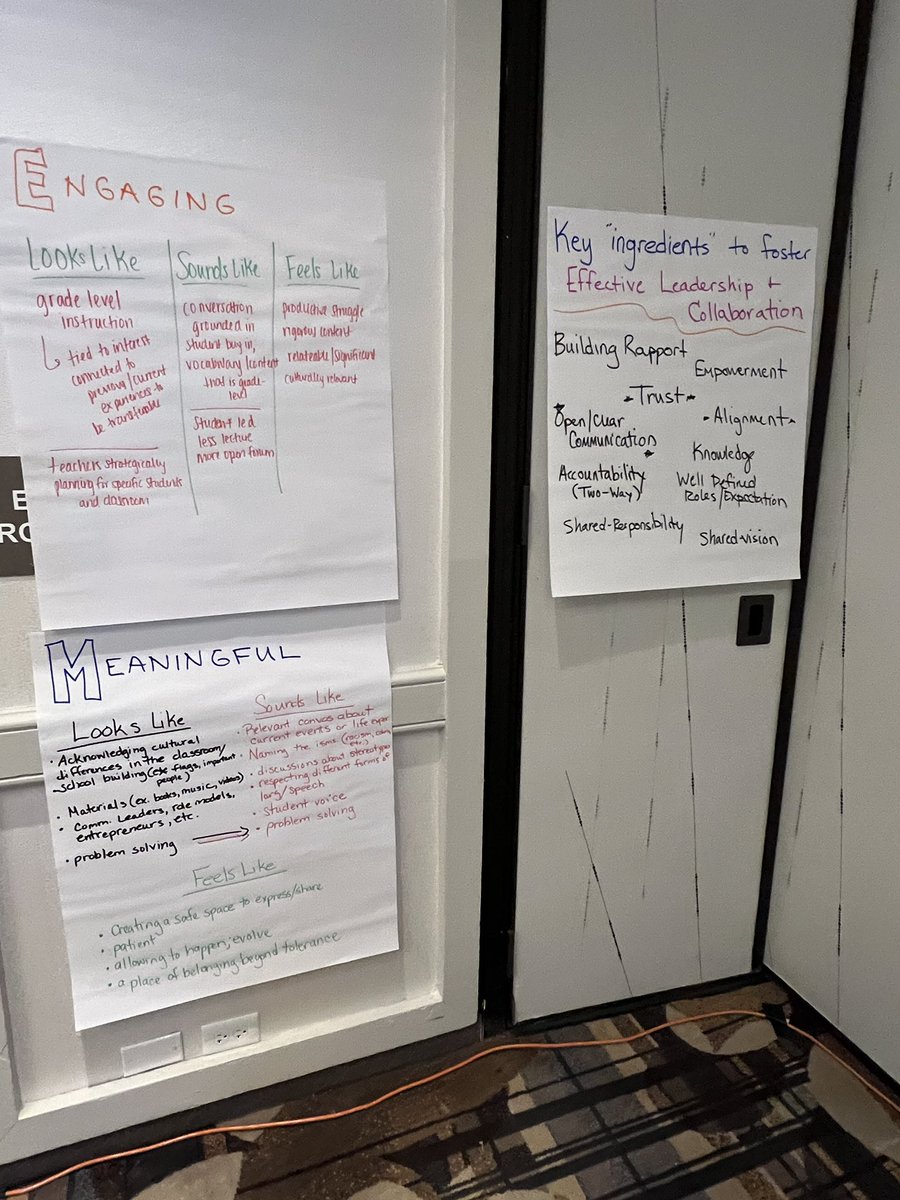 ENGAGING
Looks Like
grade level
instruction
tied to interest
connected to
previous/current
experiences to
be transferable
teachers strategically
planning for specific students
and classroom
Sounds Like
conversation
grounded in
student buy in,
vocabulary/content
that is grade-
level
Student led
less lecture
more open forum
Feels Like
productive struggle
rigorous content
relateable/significant
culturally relevant
MEANINGFUL
Looks Like
• Acknowledging cultural
differences in the classroom/
school building (ex flags, important
people)
• Materials (ex. books, music, videos)
• Comm. Leaders, role models,
entrepreneurs, etc.
• problem solving
Sounds Like
• Relevant convos about
current events or life exper
• Naming the isms (racism,
etc.)
• discussions about stereotypes
• respecting different forms of
lang/speech
• Student voice
• problem solving
Feels Like
• Creating a safe space to express/share
• patient
• allowing to happen; evolve
• a place of belonging beyond tolerance
Key "ingredients" to foster
Effective Leadership +
Collaboration
Building Rapport
Empowerment
- Trust -
Open/Clear
Communication
- Alignment -
Knowledge
Accountability
(Two-Way)
Well Defined
Roles/Expectation
Shared-Responsibility
Shared-vision
E
RO